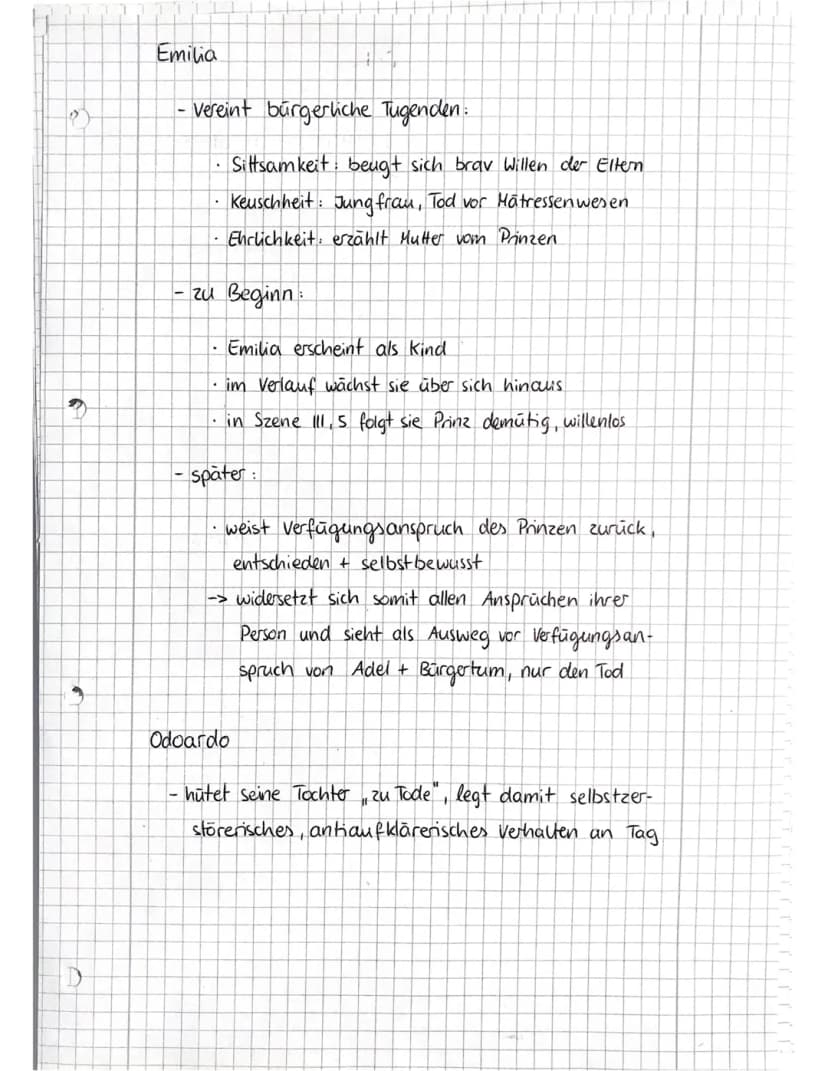 Emilia
- vereint bürgerliche Tugenden:
· Sittsamkeit: beugt sich brav Willen der Eltern
· Keuschheit: Jungfrau, Tod vor Mätressenwesen
· Ehrlichkeit: erzählt Mutter vom Prinzen
- zu Beginn:
· Emilia erscheint als Kind
· im Verlauf wächst sie über sich hinaus
· in Szene III,5 folgt sie Prinz demütig, willenlos
- später:
· weist Verfügungsanspruch des Prinzen zurück,
entschieden + selbstbewusst
-> widersetzt sich somit allen Ansprüchen ihrer
Person und sieht als Ausweg vor Verfügungsan-
spruch von Adel + Bürgertum, nur den Tod
Odoardo
- hütet seine Tochter „zu Tode", legt damit selbstzer-
störerisches, antiaufklärerisches Verhalten an Tag